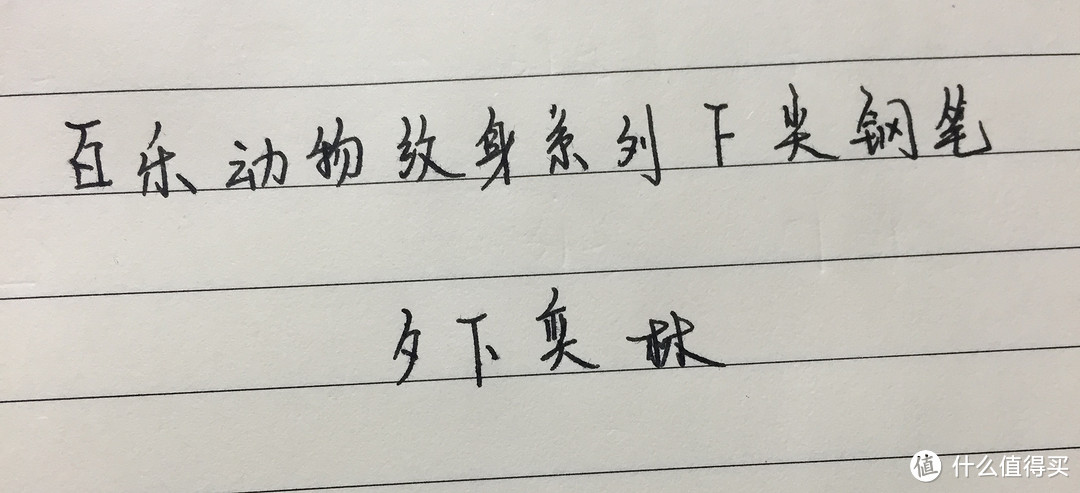 百乐动物纹身系列F尖钢笔
夕下奥林
值 什么值得买